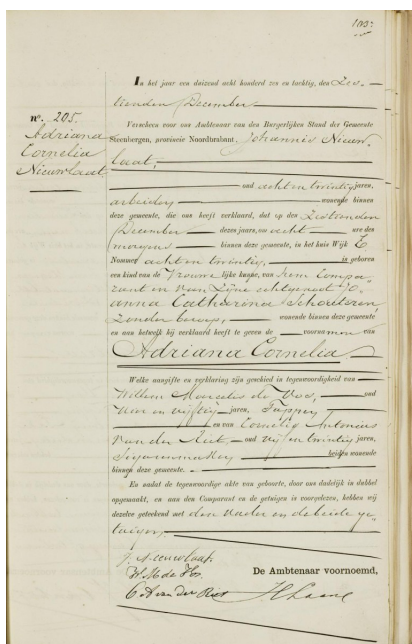 103.
In het jaar een duizend acht honderd zes en tachtig, den Zes-
tienden December
nº. 205.
Adriana
Cornelia
Nieuwlaat.
Verscheen voor ons Ambtenaar van den Burgerlijken Stand der Gemeente
Steenbergen, provincie Noordbrabant, Johannis Nieuw-
laat,
oud acht en twintig jaren,
arbeider, wonende binnen
deze gemeente, die ons heeft verklaard, dat op den Zestienden
December dezes jaren, om acht ure des
morgens binnen deze gemeente, in het huis Wijk E
Nommer acht en twintig, is geboren
een kind van de Vrouwelijke kunne, van hem Compa-
rant en van zijne echtgenoot
Anna Catharina Scholteren
zonder beroep, wonende binnen deze gemeente
en aan hetwelk hij verklaard heeft te geven de voornamen van
Adriana Cornelia.
Welke aangifte en verklaring zijn geschied in tegenwoordigheid van
Willem Marcelis de Vos, oud
vier en vijftig jaren, Tapper,
en van Cornelis Antonius
van der Riet, oud vijf en twintig jaren,
Sigarenmaker, beiden wonende
binnen deze gemeente.
En nadat de tegenwoordige akte van geboorte, door ons dadelijk in dubbel
opgemaakt, en aan den Comparant en de getuigen is voorgelezen, hebben wij
dezelve geteekend met den Vader en de beide ge-
tuigen,
J. Nieuwlaat.
W. M. de Vos.
C A van der Riet
De Ambtenaar voornoemd,